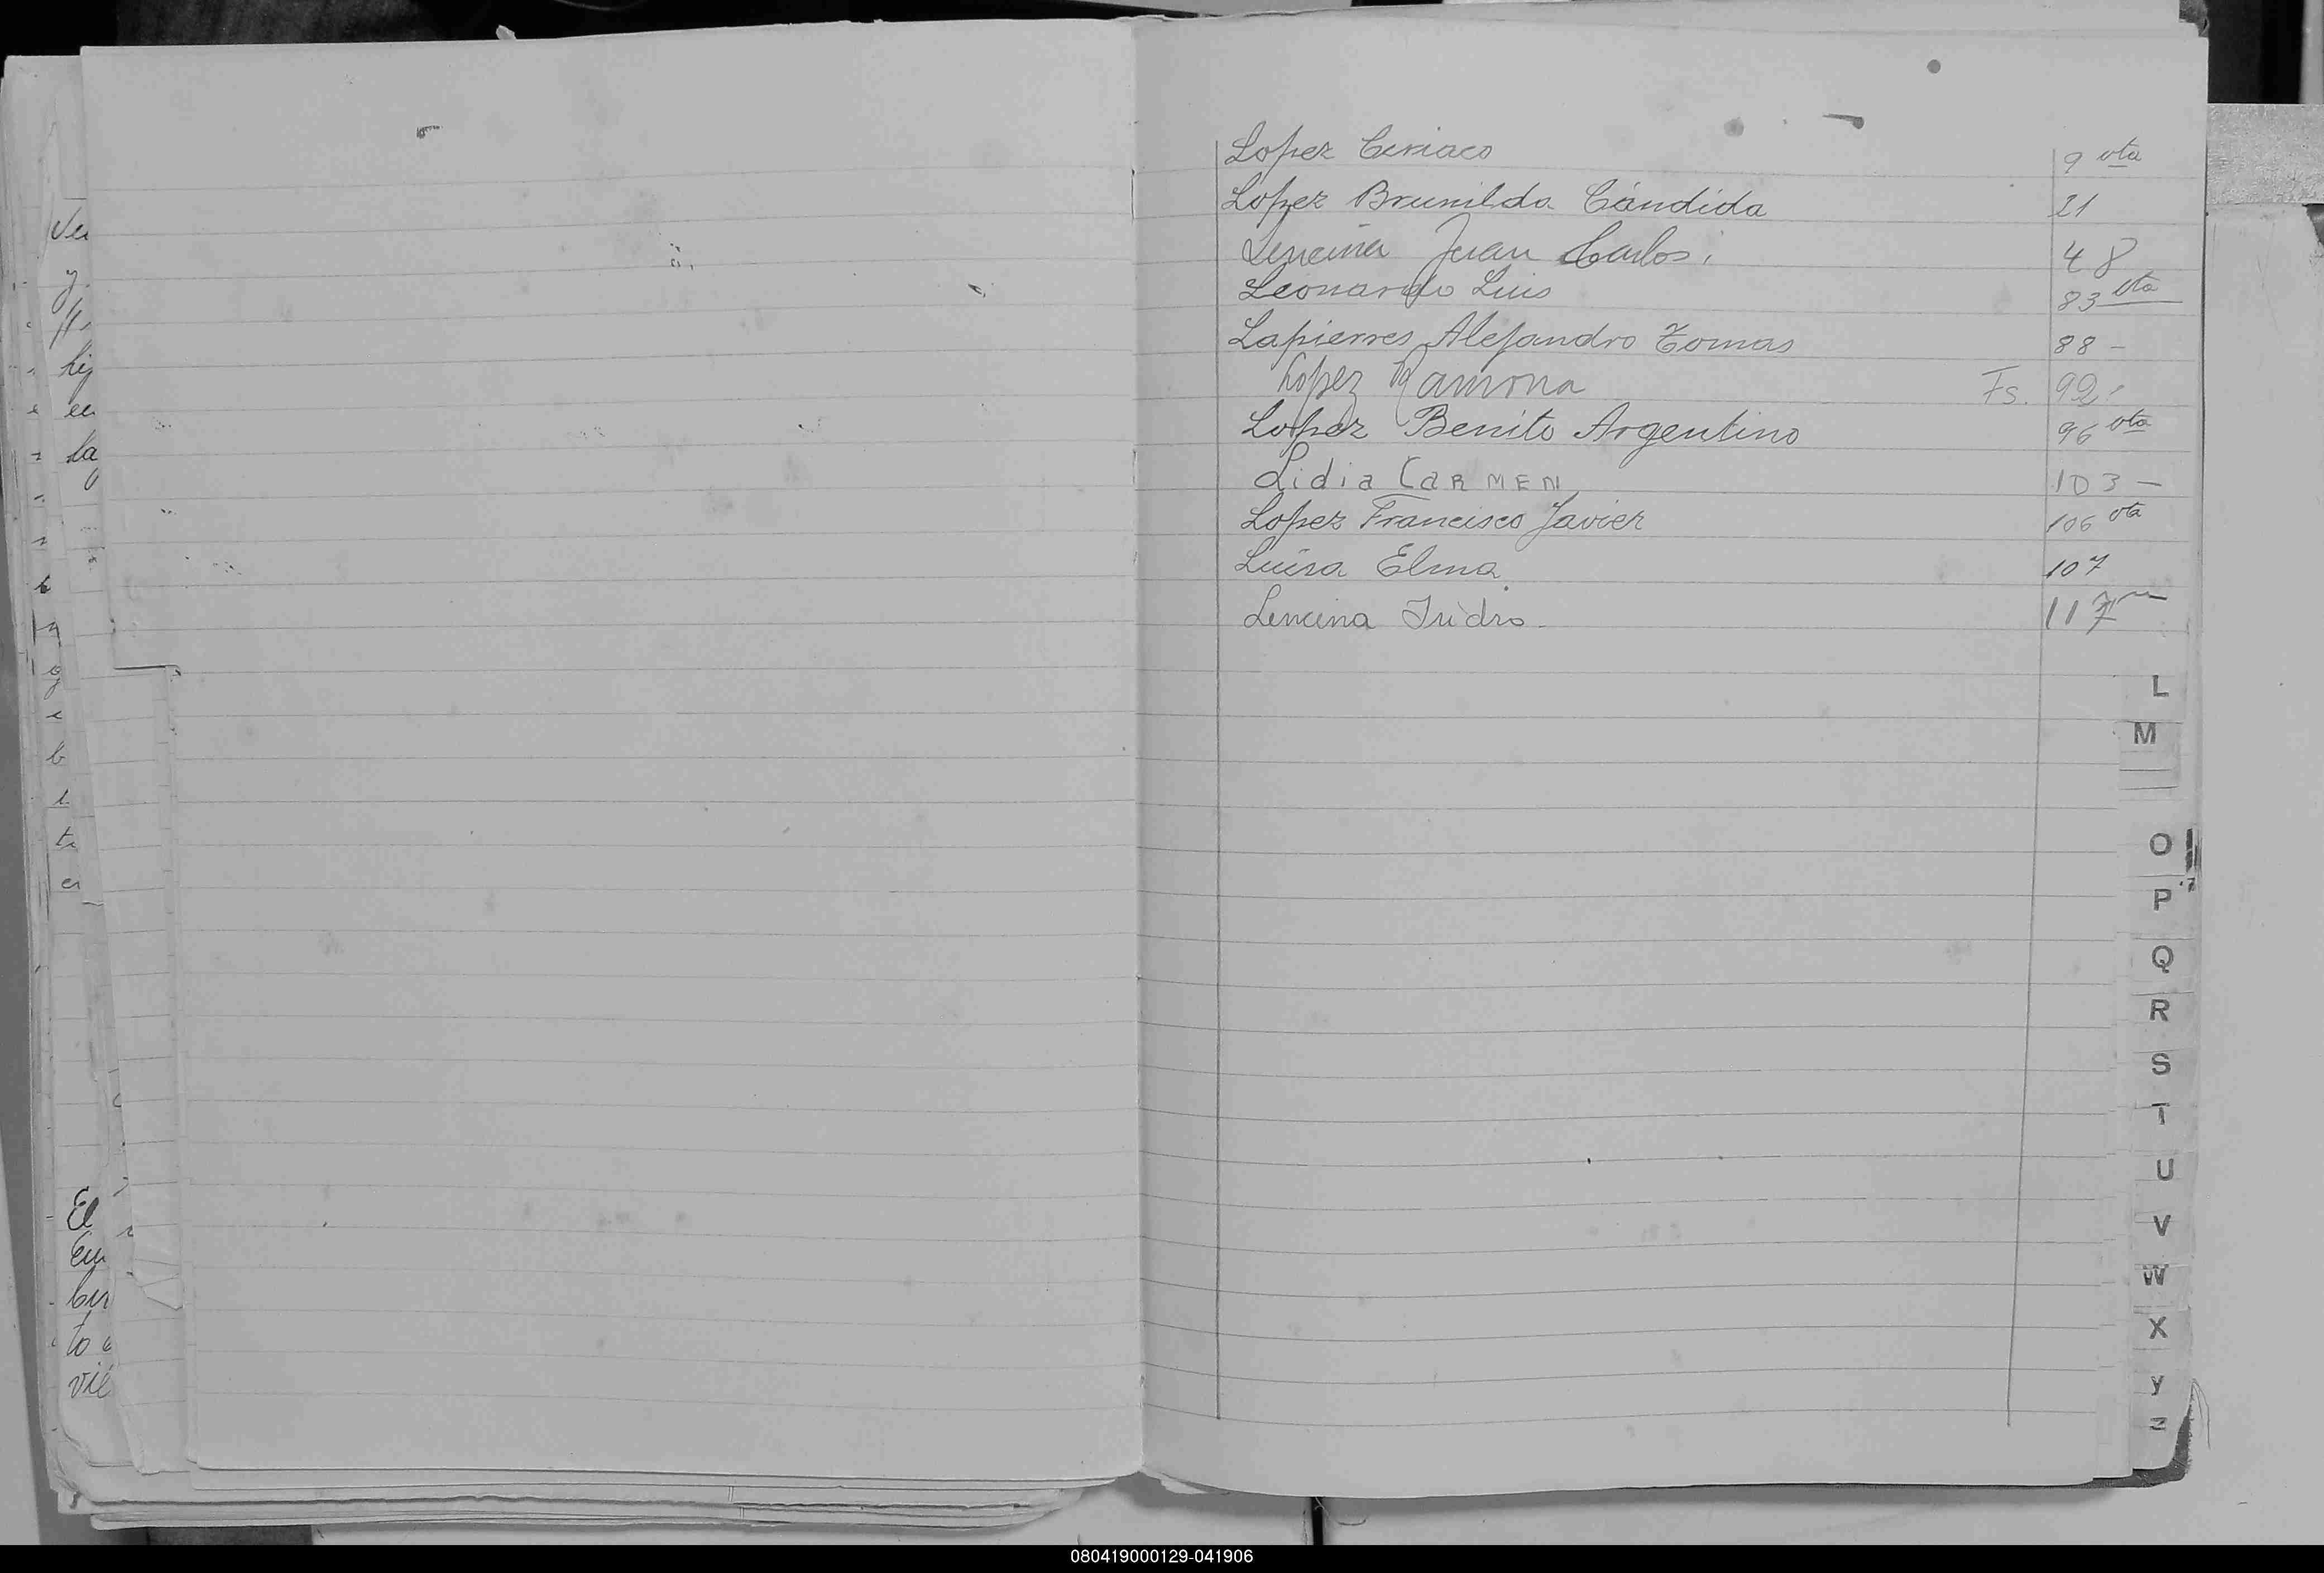 Lopez Ciriaco 9 vta
Lopez Brunilda Cándida 21
Lencina Juan Carlos. 48
Leonardo Luis 83 vta
Lapierres Alejandro Tomas 88 -
Lopez Ramona Fs. 92
Lopez Benito Argentino 96 vta
Lidia CARMEN 103 -
Lopez Francisco Javier 106 vta
Luisa Elma 107
Lencina Isidro - 117
L
M
O
P
Q
R
S
T
U
V
W
X
y
z
080419000129-041906